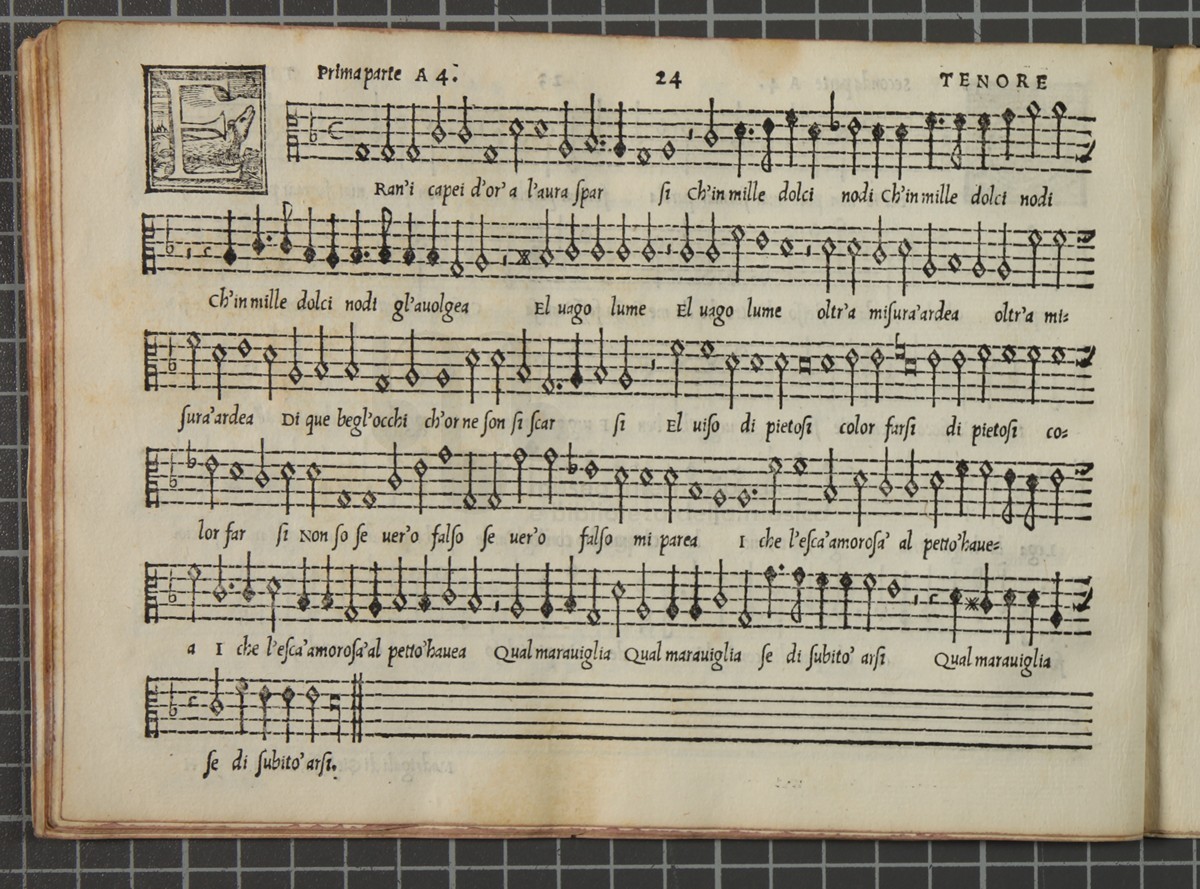 Prima parte A 4. 24 TENORE
E Ran'i capei d'or'a l'aura ſpar ſi Ch'in mille dolci nodi Ch'in mille dolci nodi
Ch'in mille dolci nodi gl'auolgea El uago lume El uago lume oltr'a miſura'ardea oltr'a mi=
ſura'ardea Di que begl'occhi ch'or ne ſon ſi ſcar ſi El uiſo di pietoſi color farſi di pietoſi co=
lor far ſi Non ſo ſe uer'o falſo ſe uer'o falſo mi parea I che l'eſca'amoroſa' al petto'haue=
a I che l'eſca'amoroſa'al petto'hauea Qual marauiglia Qual marauiglia ſe di ſubito' arſi Qual marauiglia
ſe di ſubito' arſi.